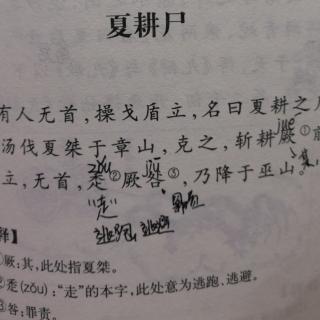 夏耕尸
有人无首，操戈盾立，名曰夏耕之
jué
汤伐夏桀于章山，克之，斩耕厥①前
zǒu jiù 其
立，无首，走②厥咎③，乃降于巫山。
"走" 罪责
逃跑，逃避
释】
①厥：其，此处指夏桀。
②𧺆（zǒu）："走"的本字，此处意为逃跑、逃避。
③咎：罪责。